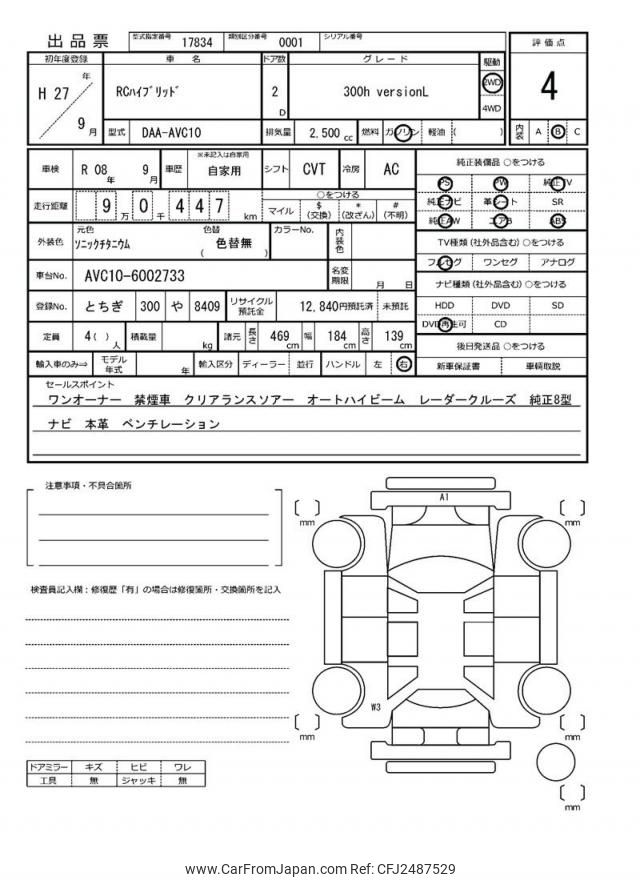 出品票 型式指定番号 17834 類別区分番号 0001 シリアル番号
初年度登録 車名 ドア数 グレード 駆動 評価点
H 27年 9月 RCﾊｲﾌﾞﾘｯﾄﾞ 2D 300h versionL 2WD 4WD 4
型式 DAA-AVC10 排気量 2,500cc 燃料 ガソリン 軽油 ( ) 内装 A B C
車検 R 08年 9月 車歴 ※未記入は自家用 自家用 シフト CVT 冷房 AC 純正装備品 ○をつける
PS PW 純正TV
走行距離 9万0千447km ○をつける 純正ナビ 革シート SR
マイル $(交換) *(改ざん) #(不明) 純正AW エアB ABS
外装色 元色 ｿﾆｯｸﾁﾀﾆｳﾑ 色替 ( 色替無 ) カラーNo. 内装色 TV種類(社外品含む)○をつける
フルセグ ワンセグ アナログ
車台No. AVC10-6002733 名変期限 月 日 ナビ種類(社外品含む)○をつける
登録No. とちぎ 300 や 8409 リサイクル預託金 12,840円預託済 未預託 HDD DVD SD
DVD再生可 CD
定員 4( )人 積載量 kg 諸元 長さ 469cm 幅 184cm 高さ 139cm 後日発送品 ○をつける
輸入車のみ⇒ モデル年式 年 輸入区分 ディーラー 並行 ハンドル 左 右 新車保証書 車輌取説
セールスポイント
ワンオーナー 禁煙車 クリアランスソアー オートハイビーム レーダークルーズ 純正8型
ナビ 本革 ベンチレーション
注意事項・不具合箇所
A1
mm mm
検査員記入欄:修復歴「有」の場合は修復箇所・交換箇所を記入
W3
mm mm
ドアミラー キズ ヒビ ワレ
工具 無 ジャッキ 無
mm
www.CarFromJapan.com Ref: CFJ2487529